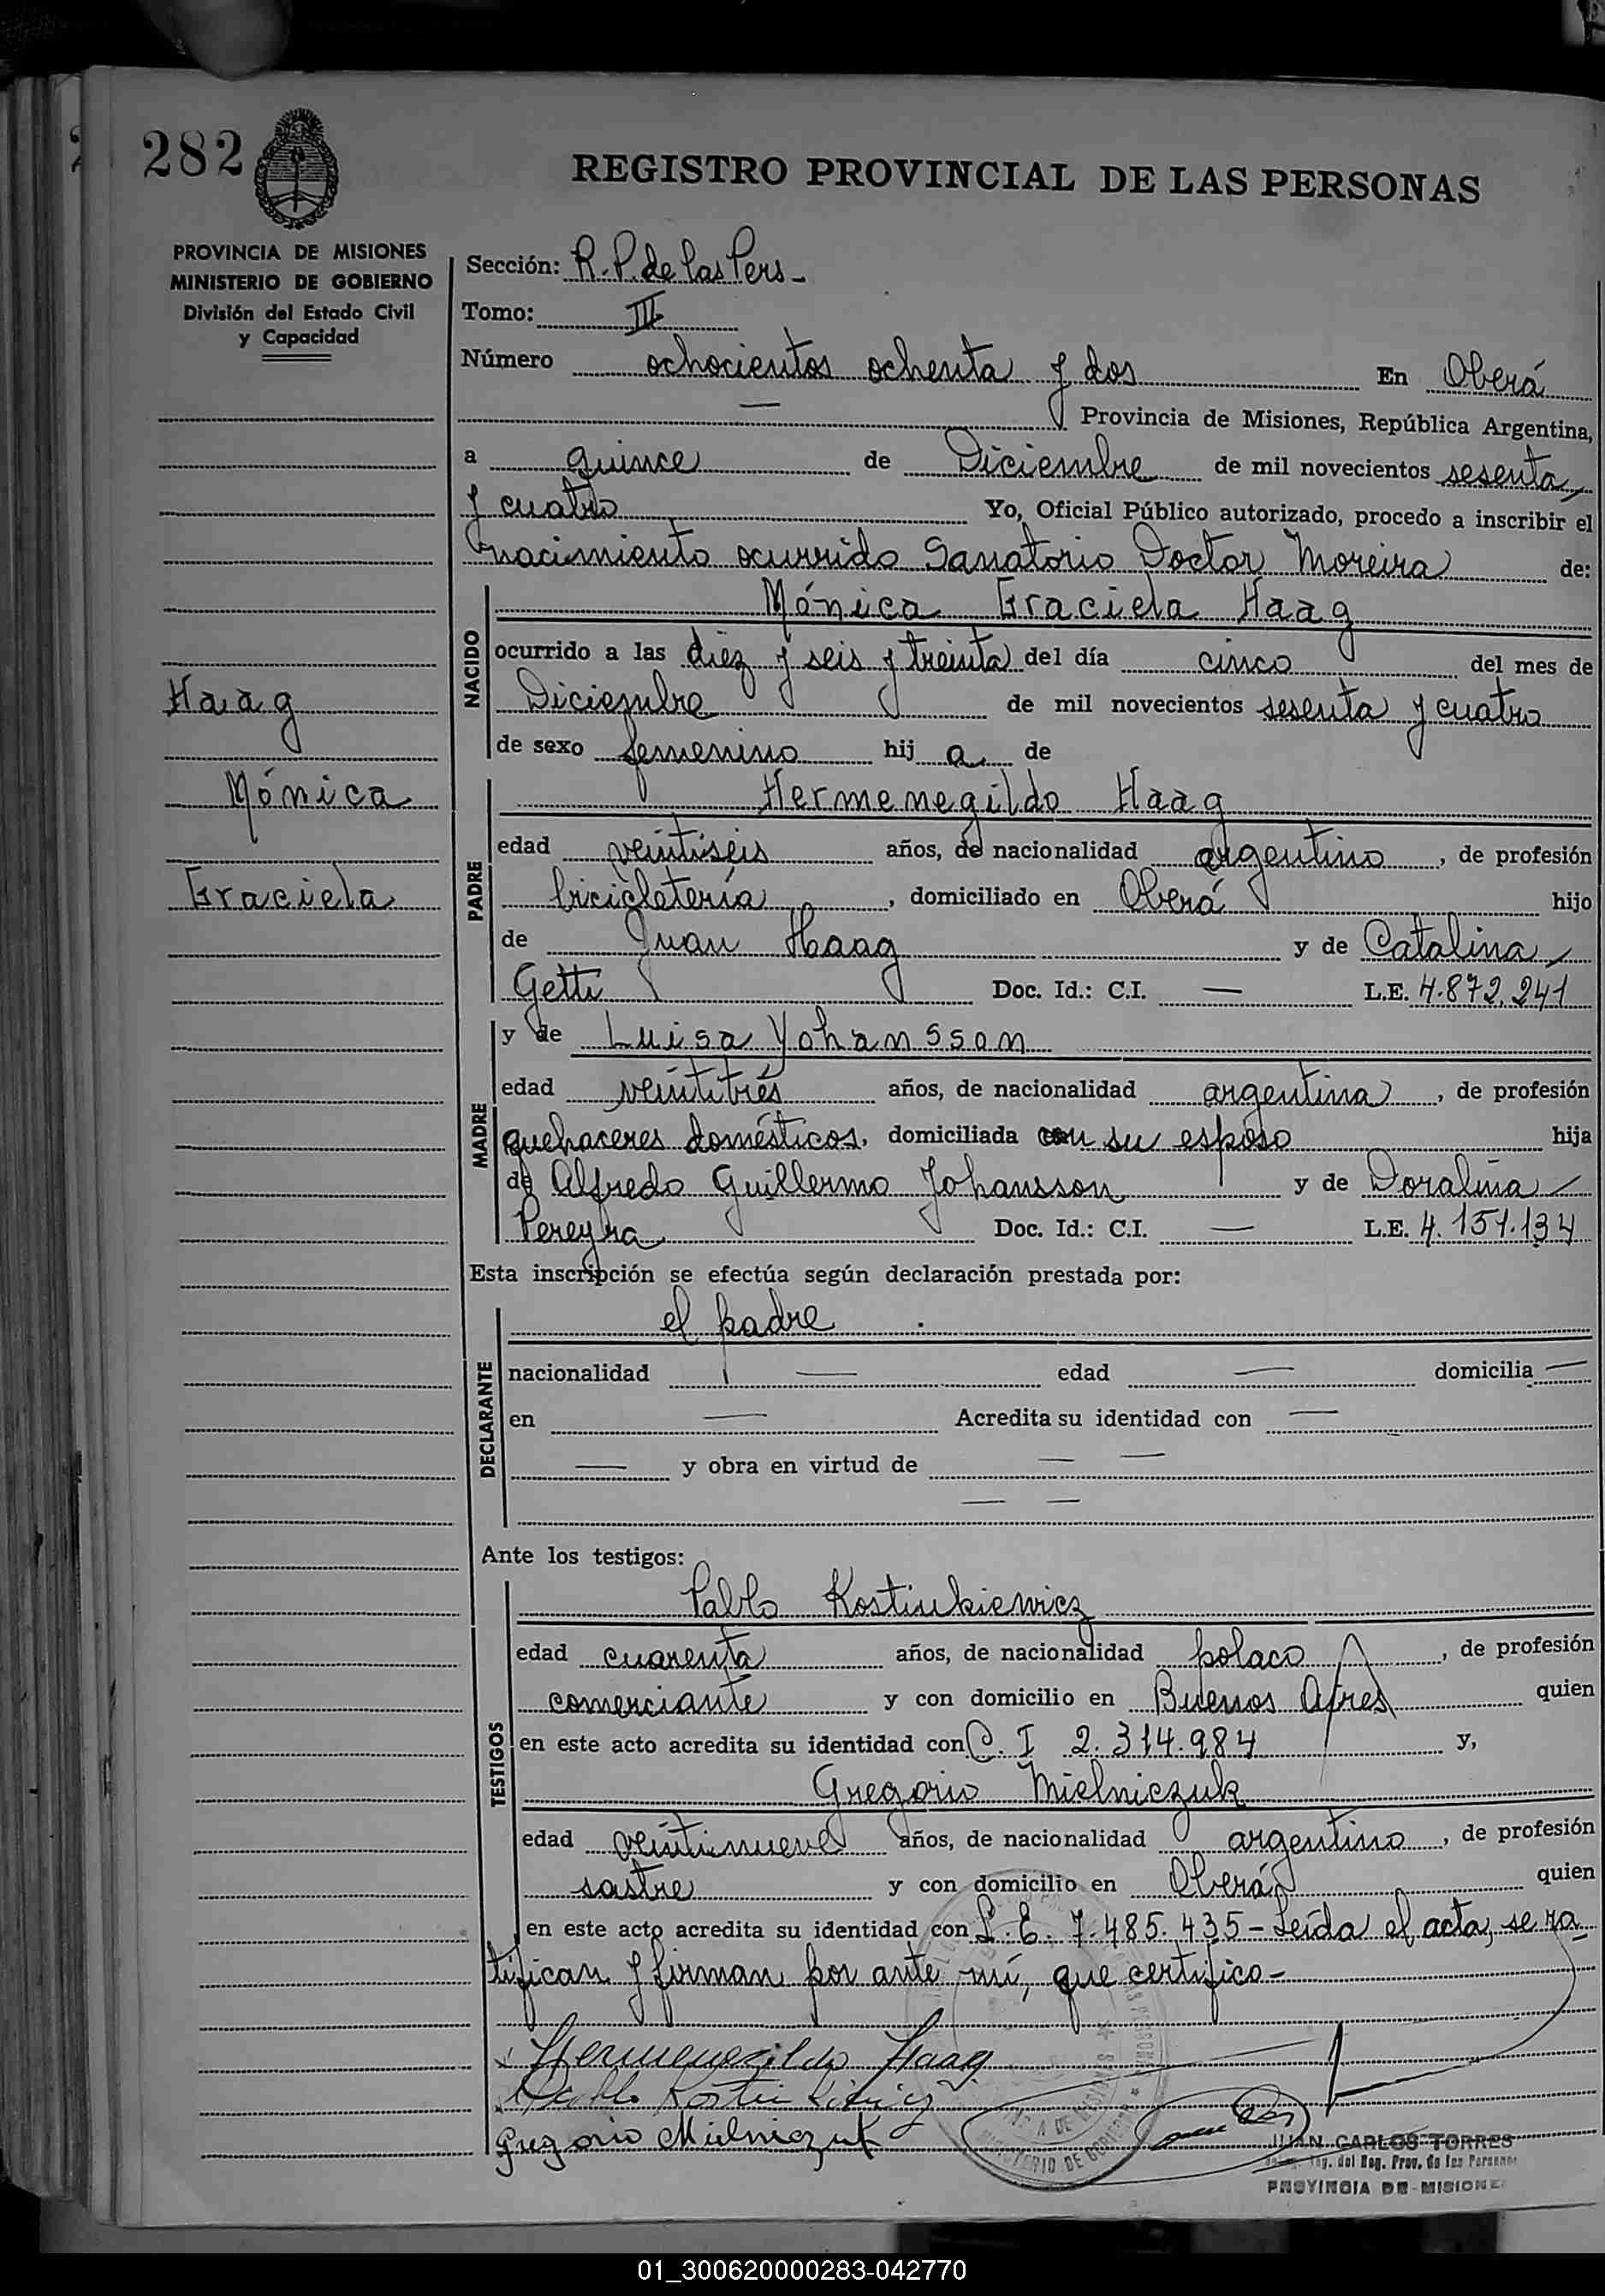 282
REGISTRO PROVINCIAL DE LAS PERSONAS
PROVINCIA DE MISIONES
MINISTERIO DE GOBIERNO
División del Estado Civil
y Capacidad
Haag
Mónica
Graciela
Sección: R.P. de las Pers-
Tomo: III
Número ochocientos ochenta y dos En Oberá
— Provincia de Misiones, República Argentina,
a quince de Diciembre de mil novecientos sesenta
y cuatro Yo, Oficial Público autorizado, procedo a inscribir el
nacimiento ocurrido Sanatorio Doctor Moreira de:
NACIDO
Mónica Graciela Haag
ocurrido a las diez y seis y treinta del día cinco del mes de
Diciembre de mil novecientos sesenta y cuatro
de sexo femenino hij a de
PADRE
Hermenegildo Haag
edad veintiseis años, de nacionalidad argentino, de profesión
bicicletería, domiciliado en Oberá hijo
de Juan Haag y de Catalina
Getti Doc. Id.: C.I. — L.E. 4.872.241
MADRE
y de Luisa Yohansson
edad veintitrés años, de nacionalidad argentina, de profesión
quehaceres domésticos, domiciliada con su esposo hija
de Alfredo Guillermo Johansson y de Doralina
Pereyra Doc. Id.: C.I. — L.E. 4.151.134
Esta inscripción se efectúa según declaración prestada por:
DECLARANTE
el padre
nacionalidad — edad — domicilia —
en — Acredita su identidad con —
— y obra en virtud de — —
— —
Ante los testigos:
TESTIGOS
Pablo Kostiukiewicz
edad cuarenta años, de nacionalidad polaco, de profesión
comerciante y con domicilio en Buenos Aires quien
en este acto acredita su identidad con C. I 2.314.984 y,
Gregorio Mielniczuk
edad veintinueve años, de nacionalidad argentino, de profesión
sastre y con domicilio en Oberá quien
en este acto acredita su identidad con L. E. 7.485.435 - Leída el acta, se ra
tifican y firman por ante mí, que certifico-
Hermenegildo Haag
Pablo Kostiukiewicz
Gregorio Mielniczuk
JUAN CARLOS TORRES
del Reg. Prov. de las Personas
PROVINCIA DE MISIONES
01_300620000283-042770